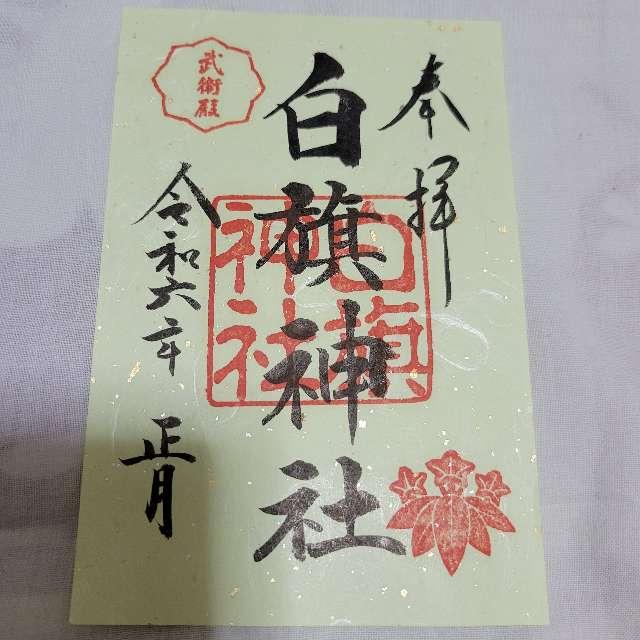 奉拝
白旗神社
白旗
神社
武術殿
令和六年
正月